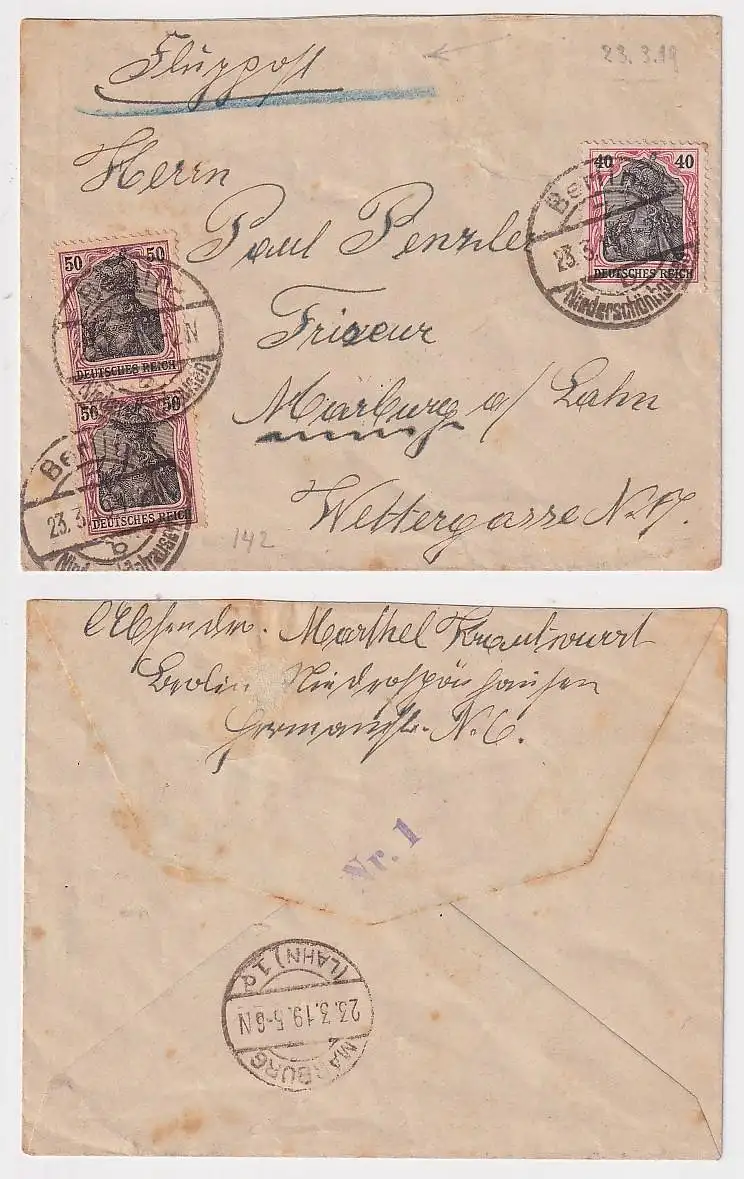 Flugpost
23.3.19
Herrn
Paul Penzler
Friseur
Marburg a/ Lahn
Wettergasse N.
40 40
DEUTSCHES REICH
Berlin
23.3.
Niederschönhausen
50 50
DEUTSCHES REICH
Berlin
N
50 50
DEUTSCHES REICH
Berlin
23.3.
b
142
Absender. Marthel Krautwurst
Berlin Niederschönhausen
Hermannstr. N. 6.
Nr. 1
MARBURG
23.3.19. 5-6 N
(LAHN) 1